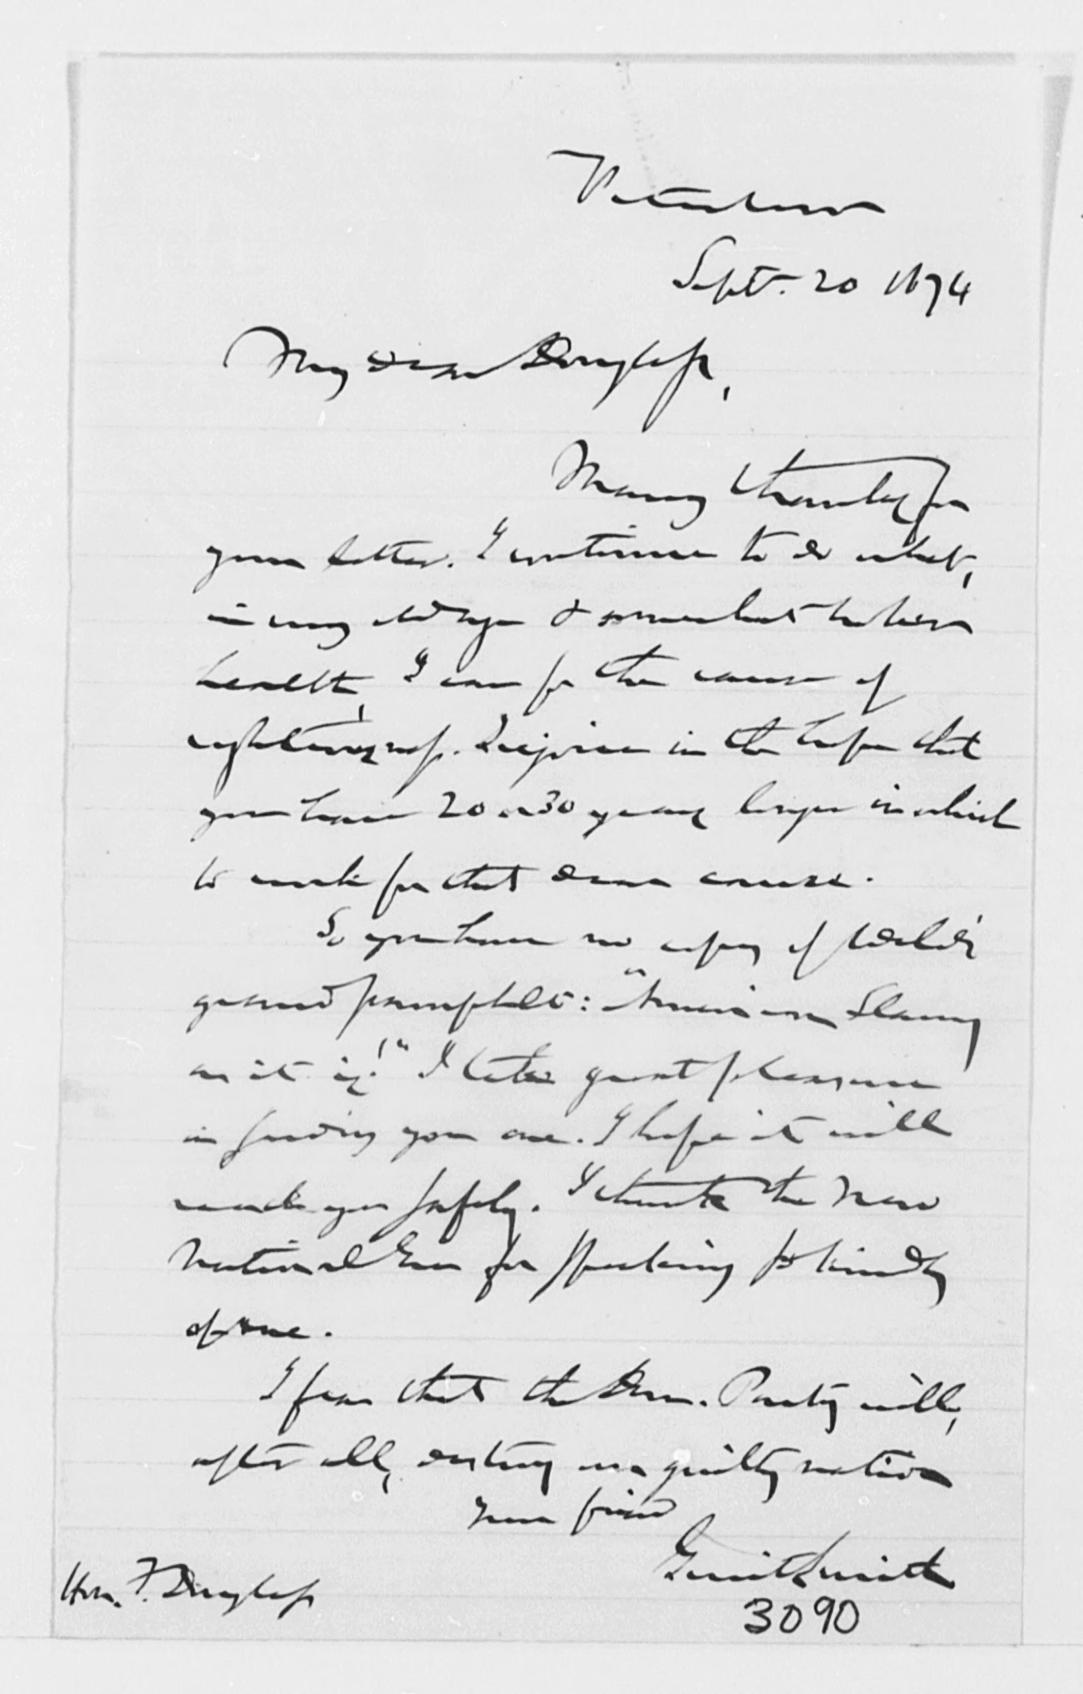 Peterboro
Sept. 20 1874
My Dear Douglass,
Many thanks for
your letter. I continue to do what,
in my old age & somewhat broken
health, I can for the cause of
righteousness. I rejoice in the hope that
you have 20 or 30 years longer in which
to work for that dear cause.
So you have no copy of Weld's
grand pamphlet: "American Slavery
as it is!" I take great pleasure
in sending you one. I hope it will
reach you safely. I thank the New
National Era for speaking so kindly
of me.
I fear that the Dem. Party will,
after all, destroy our guilty nation
Your friend
Gerrit Smith
Hon. F. Douglass
3090